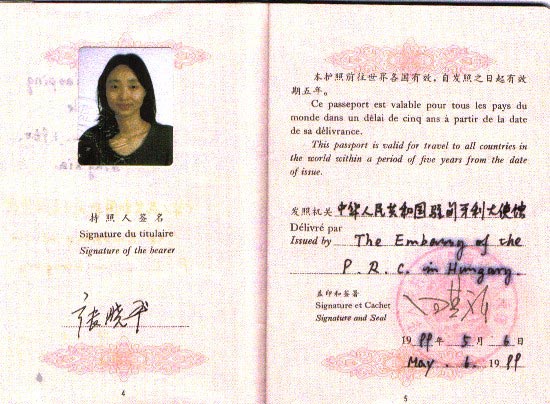 持照人签名
Signature du titulaire
Signature of the bearer
张晓平
4
本护照前往世界各国有效，自发照之日起有效
期五年。
Ce passeport est valable pour tous les pays du
monde dans un délai de cinq ans à partir de la date
de sa délivrance.
This passport is valid for travel to all countries in
the world within a period of five years from the date
of issue.
发照机关 中华人民共和国驻匈牙利大使馆
Délivré par
Issued by The Embassy of the
P. R. C. in Hungary.
盖印和签署
Signature et Cachet
Signature and Seal
1999年 5月 6日
May. 6. 1999
5